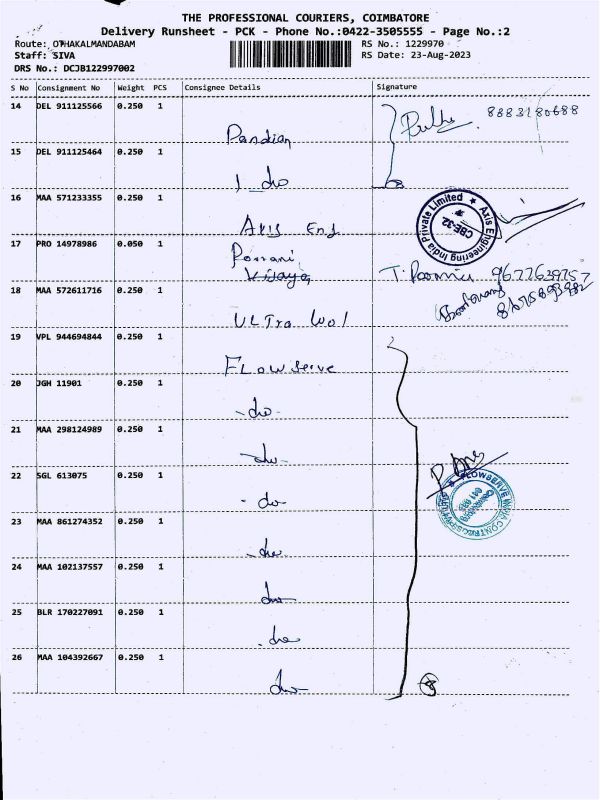 THE PROFESSIONAL COURIERS, COIMBATORE
Delivery Runsheet - PCK - Phone No.:0422-3505555 - Page No.:2
Route: OTHAKALMANDABAM
RS No.: 1229970
Staff: SIVA
RS Date: 23-Aug-2023
DRS No.: DCJB122997002
S No Consignment No Weight PCS Consignee Details Signature
14 DEL 911125566 0.250 1
8883180688
Pandian
15 DEL 911125464 0.250 1
1 do
16 MAA 571233355 0.250 1
Axis Engineering India Private Limited
CBE-32
Axis Eng
17 PRO 14978986 0.050 1
Ponrani
Vijaya
9677639757
18 MAA 572611716 0.250 1
ULTra wol
19 VPL 944694844 0.250 1
FLowserve
20 JGH 11901 0.250 1
- do -
21 MAA 298124989 0.250 1
do -
22 SGL 613075 0.250 1
- do
FLOWSERVE INDIA CONTROLS
23 MAA 861274352 0.250 1
- do
24 MAA 102137557 0.250 1
do
25 BLR 170227091 0.250 1
- do
26 MAA 104392667 0.250 1
do
8